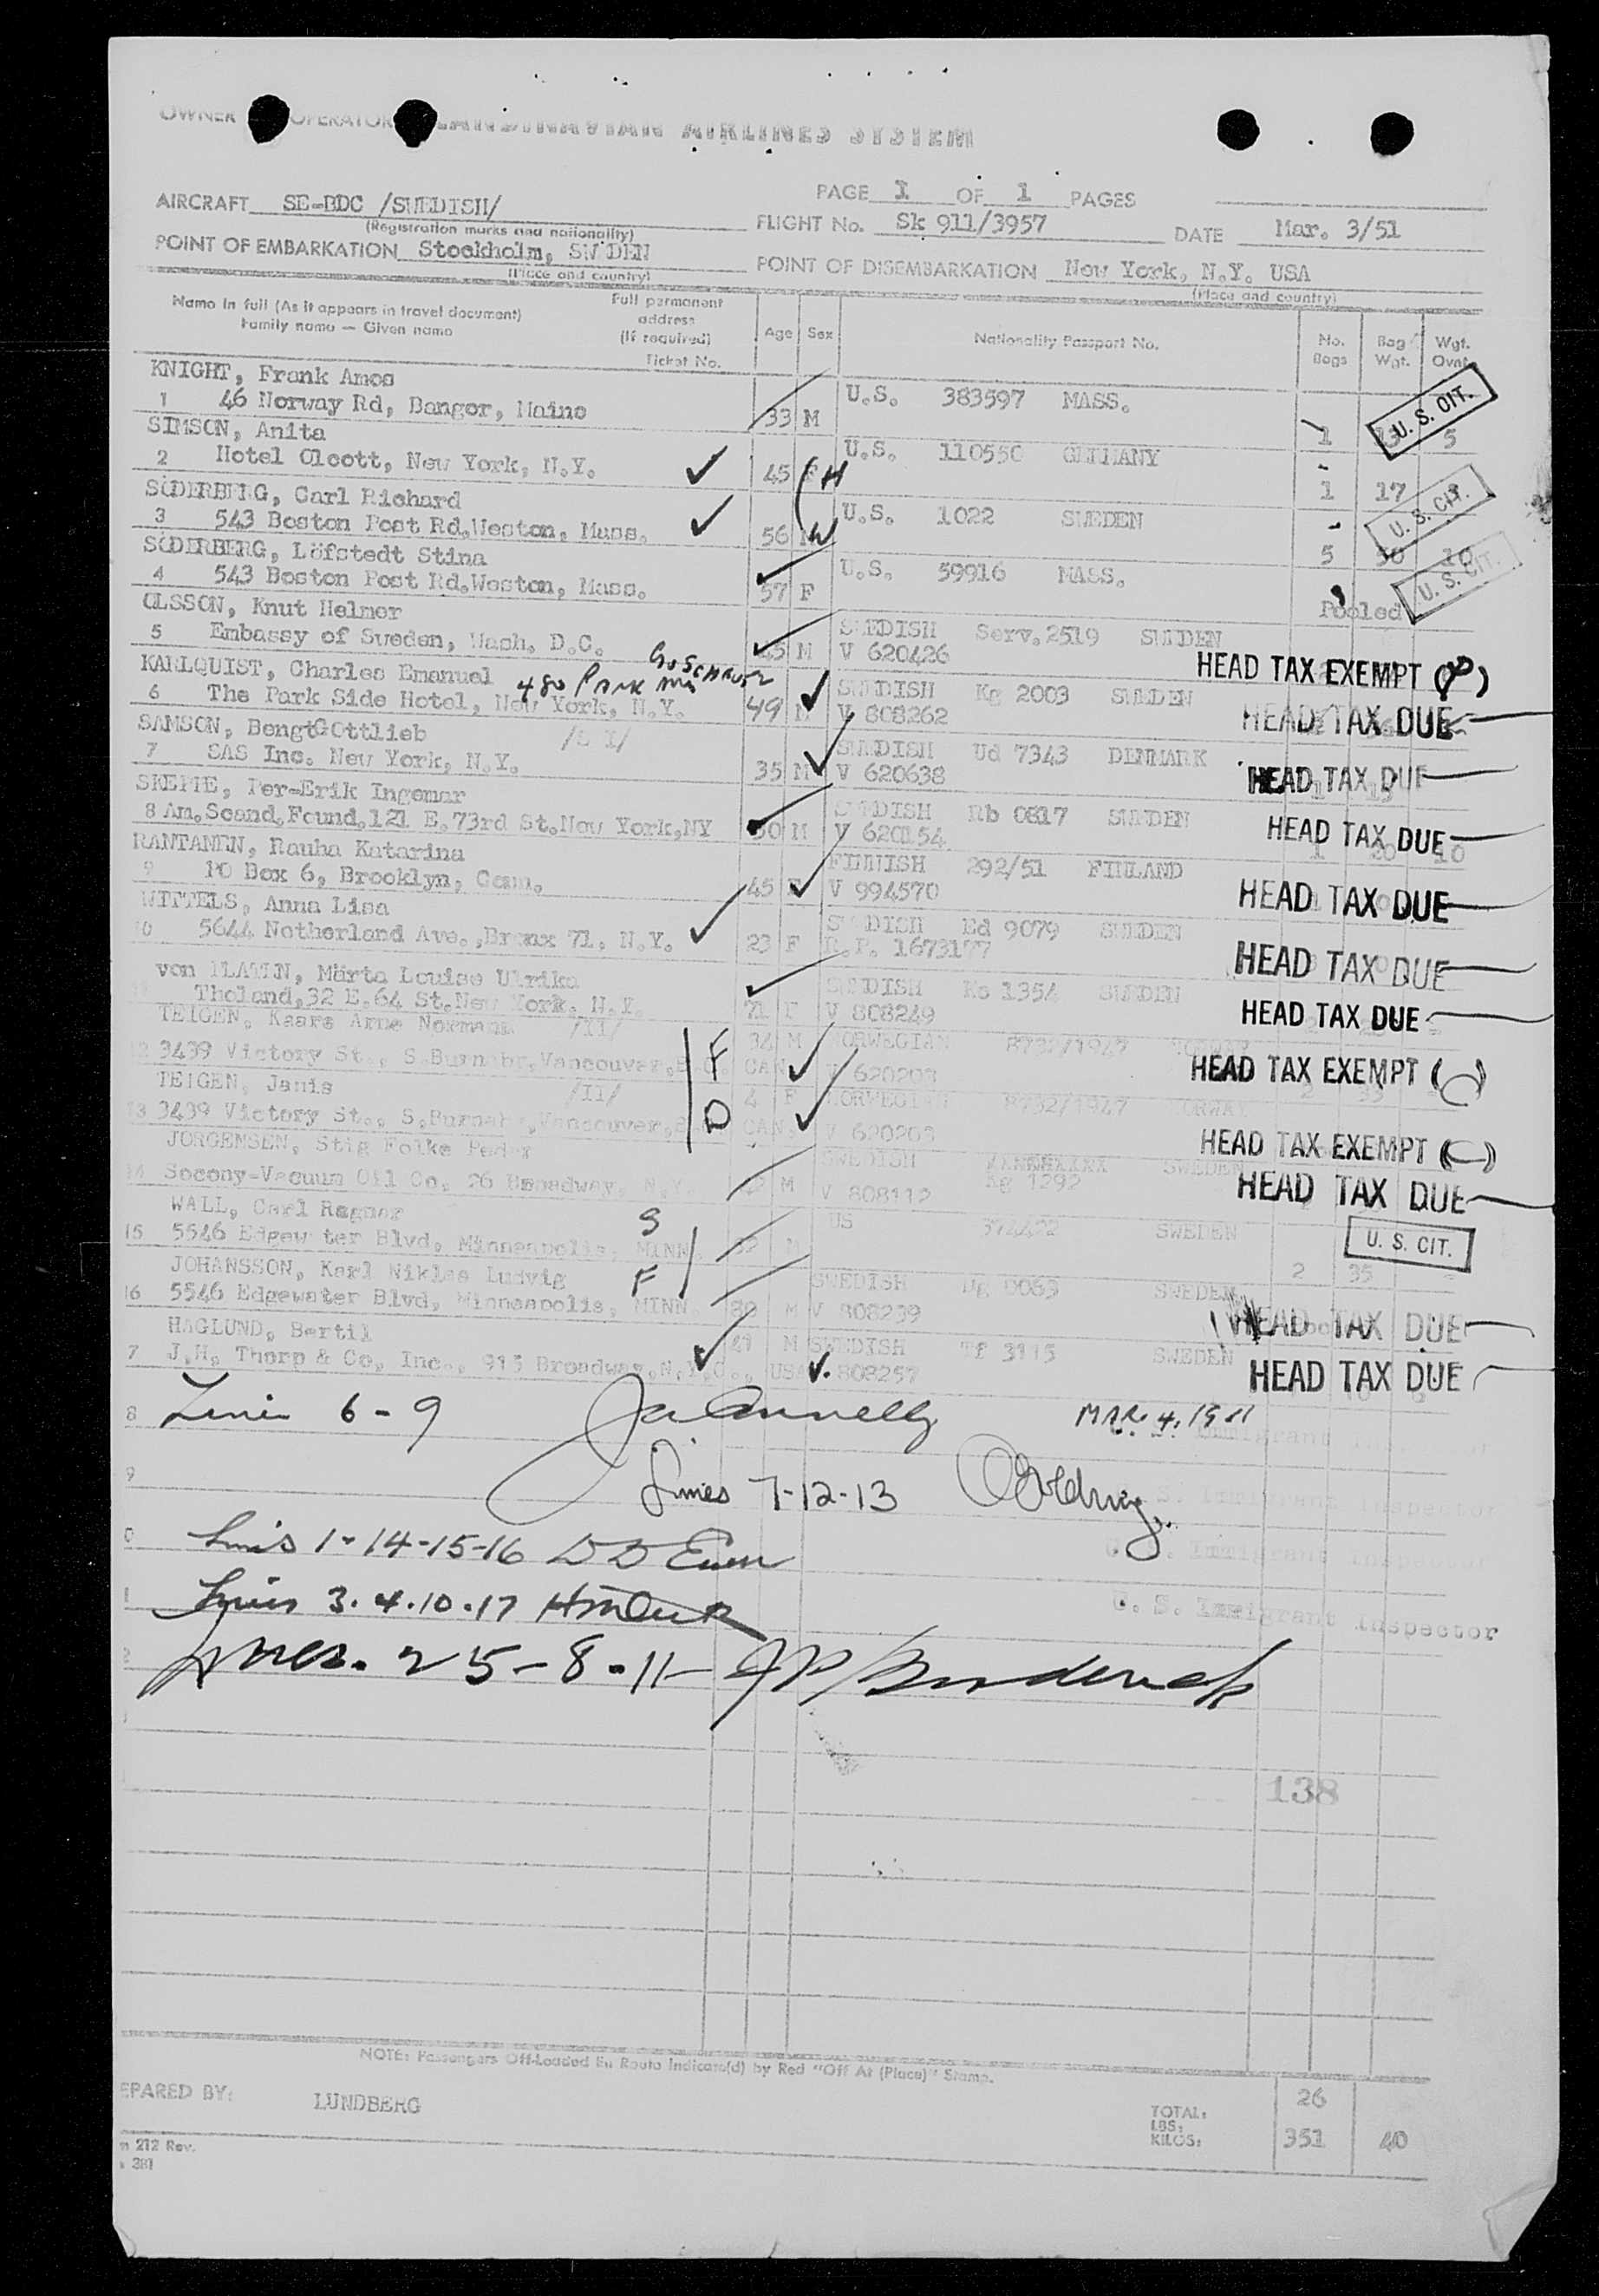 OWNER OPERATOR SCANDINAVIAN AIRLINES SYSTEM
PAGE 1 OF 1 PAGES
AIRCRAFT SE-BDC /SWEDISH/
(Registration marks and nationality)
FLIGHT No. Sk 911/3957 DATE Mar. 3/51
POINT OF EMBARKATION Stockholm, SW DEN
(Place and country)
POINT OF DISEMBARKATION New York, N.Y. USA
(Place and country)
Name in full (As it appears in travel document)
Family name — Given name
Full permanent address (If required)
Ticket No.
Age Sex Nationality Passport No. No. Bags Bag Wgt. Wgt. Ovnt.
KNIGHT, Frank Amos U.S. 383597 MASS.
1 46 Norway Rd, Bangor, Maine 33 M 1 5 U. S. CIT.
SIMSON, Anita U.S. 110550 GERMANY
2 Hotel Olcott, New York, N.Y. 45 F H 1 17 U. S. CIT.
SÖDERBERG, Carl Richard U.S. 1022 SWEDEN
3 543 Boston Post Rd.Weston, Mass. 56 M W 5 50 10 U. S. CIT.
SÖDERBERG, Löfstedt Stina U.S. 59916 MASS.
4 543 Boston Post Rd.Weston, Mass. 57 F Pooled
OLSSON, Knut Helmer SWEDISH Serv.2519 SWEDEN
5 Embassy of Sweden, Wash. D.C. 45 M V 620426 HEAD TAX EXEMPT
KARLQUIST, Charles Emanuel 480 PARK SWEDISH Kg 2003 SWEDEN
6 The Park Side Hotel, New York, N.Y. 49 M V 808262 HEAD TAX DUE
SAMSON, Bengt GOttlieb SWEDISH Ud 7343 DENMARK
7 SAS Inc. New York, N.Y. 35 M V 620638 HEAD TAX DUE
SKEPPE, Per-Erik Ingemar SWEDISH Rb 0817 SWEDEN
8 Am.Scand.Found.121 E.73rd St.New York,NY 30 M V 620154 HEAD TAX DUE
RANTANEN, Rauha Katarina FINNISH 292/51 FINLAND
9 PO Box 6, Brooklyn, Conn. 45 F V 994570 HEAD TAX DUE
WITTELS, Anna Lisa SWEDISH Ed 9079 SWEDEN
10 5644 Netherland Ave.,Bronx 71, N.Y. 23 F R.P. 1673177 HEAD TAX DUE
von PLATEN, Märta Louise Ulrika SWEDISH Ko 1354 SWEDEN
Tholand,32 E.64 St.New York, N.Y. 71 F V 808249 HEAD TAX DUE
TEIGEN, Kaare Arne Normann /II/ 34 M NORWEGIAN 8732/1947 NORWAY
12 3439 Victory St., S.Burnabr,Vancouver,B.C. F CAN V 620203 HEAD TAX EXEMPT
TEIGEN, Janis /II/ 4 F NORWEGIAN 8732/1947 NORWAY
13 3439 Victory St., S.Burnabr,Vancouver, D CAN. V 620203 HEAD TAX EXEMPT
JORGENSEN, Stig Folke Peder SWEDISH Kg 1292 SWEDEN
14 Socony-Vacuum Oil Co, 26 Broadway, N.Y. M V 808112 HEAD TAX DUE
WALL, Carl Ragnar S US 374402 SWEDEN
15 5546 Edgew ter Blvd, Minneapolis, MINN. 52 M 2 35 U. S. CIT.
JOHANSSON, Karl Niklas Ludvig F SWEDISH Ug 0063 SWEDEN
16 5546 Edgewater Blvd, Minneapolis, MINN. 80 M V 808239 HEAD TAX DUE
HAGLUND, Bertil 41 M SWEDISH Tf 3115 SWEDEN
7 J.H. Thorp & Co, Inc., 915 Broadway,N.Y.C., USA V. 808257 HEAD TAX DUE
8 Lines 6-9 MAR. 4. 1951
Immigrant
9 Lines 7-12-13
S. Immigrant Inspector
0 Lines 1-14-15-16
U. S. Immigrant Inspector
1 Lines 3.4.10.17
U. S. Immigrant Inspector
2 Lines. 2 5-8-11-
138
NOTE: Passengers Off-Loaded En Route Indicate(d) by Red "Off At (Place)" Stamp.
EPARED BY: LUNDBERG
TOTAL: 26
LBS:
KILOS: 351 40
m 212 Rev.
381